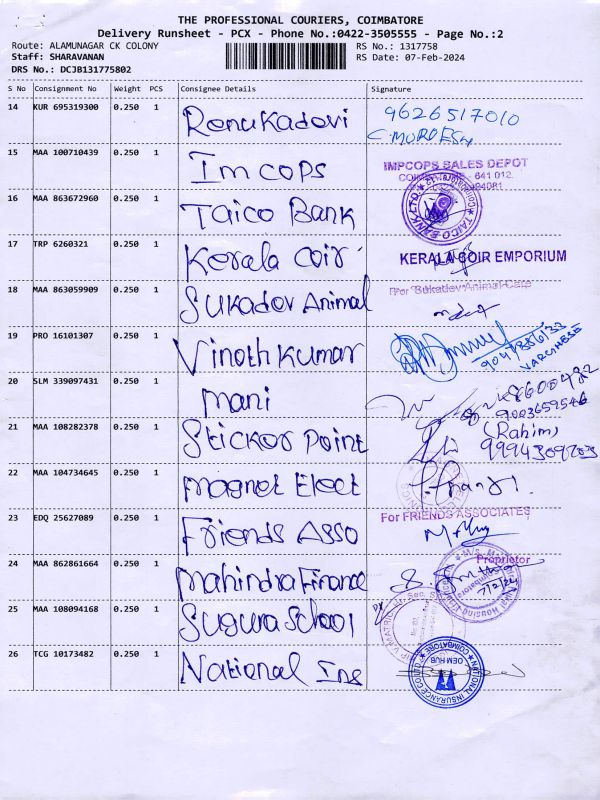 THE PROFESSIONAL COURIERS, COIMBATORE
Delivery Runsheet - PCX - Phone No.:0422-3505555 - Page No.:2
Route: ALAMUNAGAR CK COLONY
RS No.: 1317758
Staff: SHARAVANAN
RS Date: 07-Feb-2024
DRS No.: DCJB131775802
S No Consignment No Weight PCS Consignee Details Signature
14 KUR 695319300 0.250 1 Renukadevi 9626517010
C.MURGESH
15 MAA 100710439 0.250 1 Imcops IMPCOPS SALES DEPOT
641 012.
16 MAA 863672960 0.250 1 Taico Bank TAICO BANK LTD.
17 TRP 6260321 0.250 1 Kerala coir KERALA COIR EMPORIUM
18 MAA 863059909 0.250 1 Sukadev Animal For Sukadev Animal Care
19 PRO 16101307 0.250 1 Vinothkumar
VARGHESE
20 SLM 339097431 0.250 1 mani
9003659546
21 MAA 108282378 0.250 1 Sticker Point (Rahim)
22 MAA 104734645 0.250 1 magnet Elect
23 EDQ 25627089 0.250 1 Friends Asso For FRIENDS ASSOCIATES
Proprietor
24 MAA 862861664 0.250 1 Mahindra Finance
7/2/24
25 MAA 108094168 0.250 1 Suguna School
26 TCG 10173482 0.250 1 National Ins NATIONAL INSURANCE CO LTD
OEM HUB
COIMBATORE